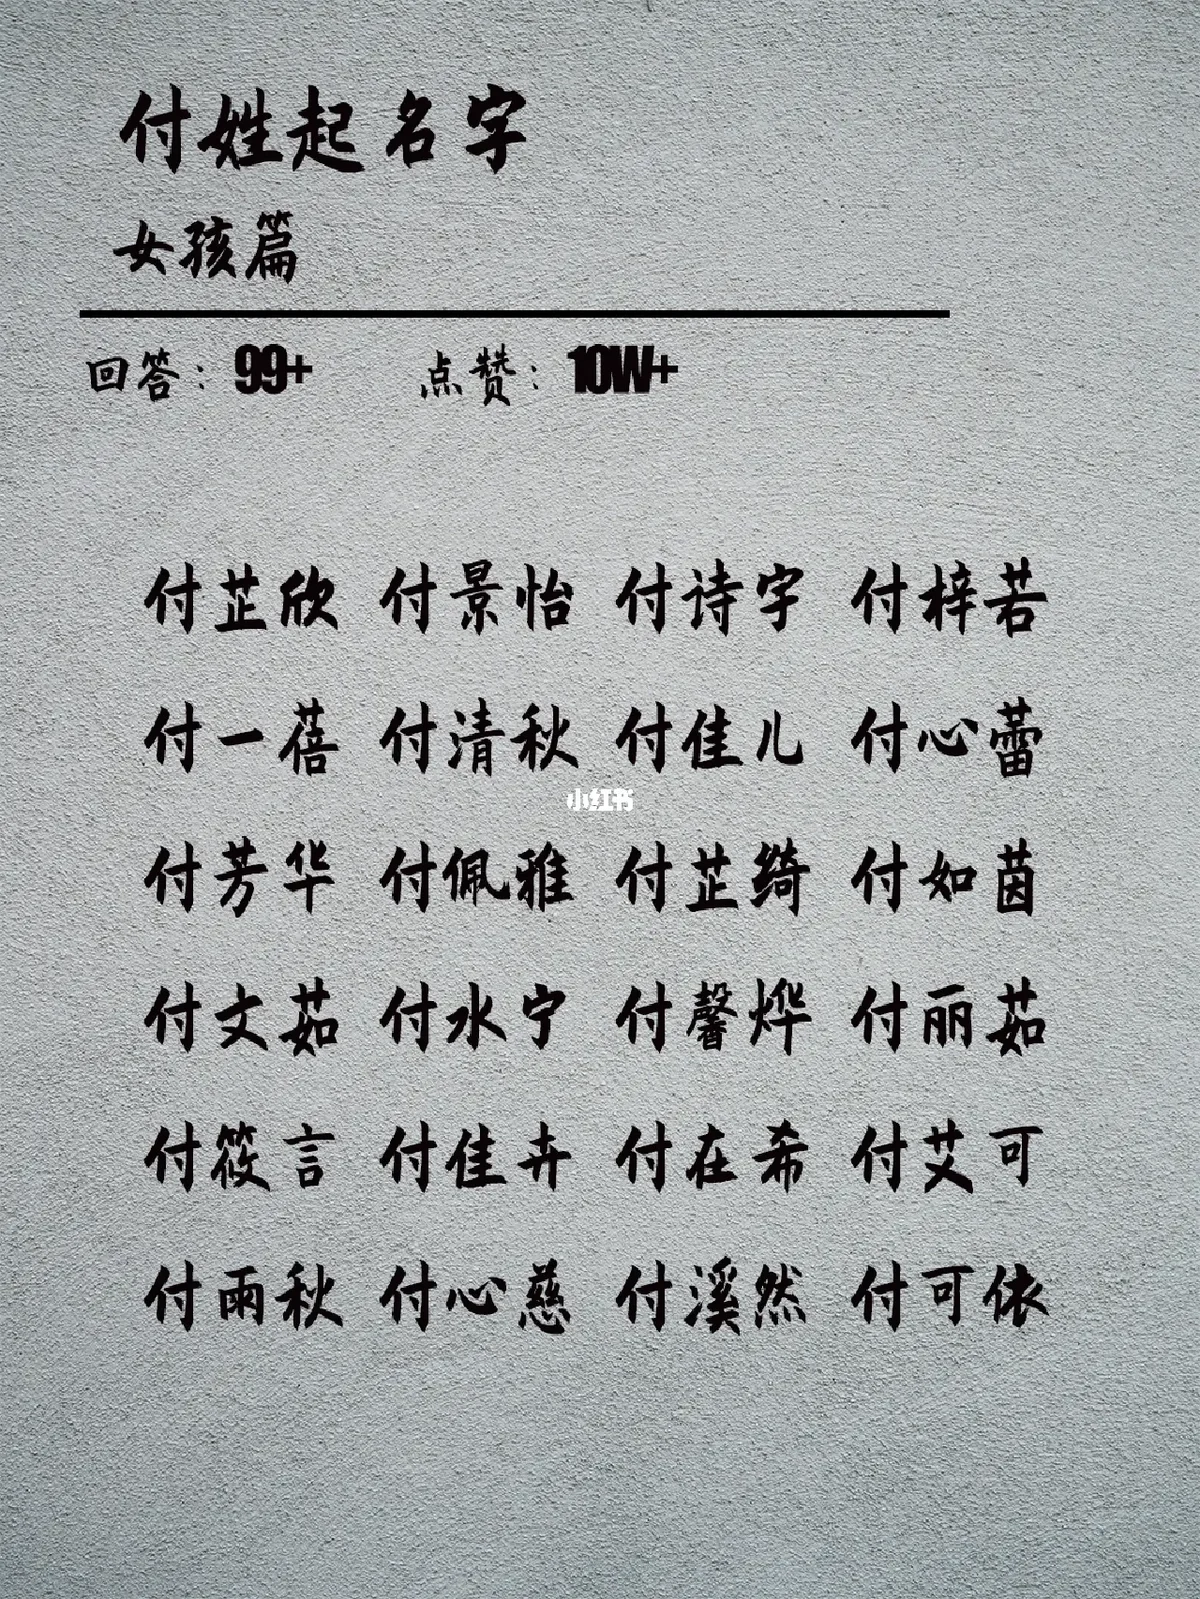 付姓起名字
女孩篇
回答：99+ 点赞：10W+
付芷欣 付景怡 付诗宇 付梓若
付一蓓 付清秋 付佳儿 付心蕾
小红书
付芳华 付佩雅 付芷绮 付如茵
付文茹 付水宁 付馨烨 付丽茹
付筱言 付佳卉 付在希 付艾可
付雨秋 付心慈 付溪然 付可依